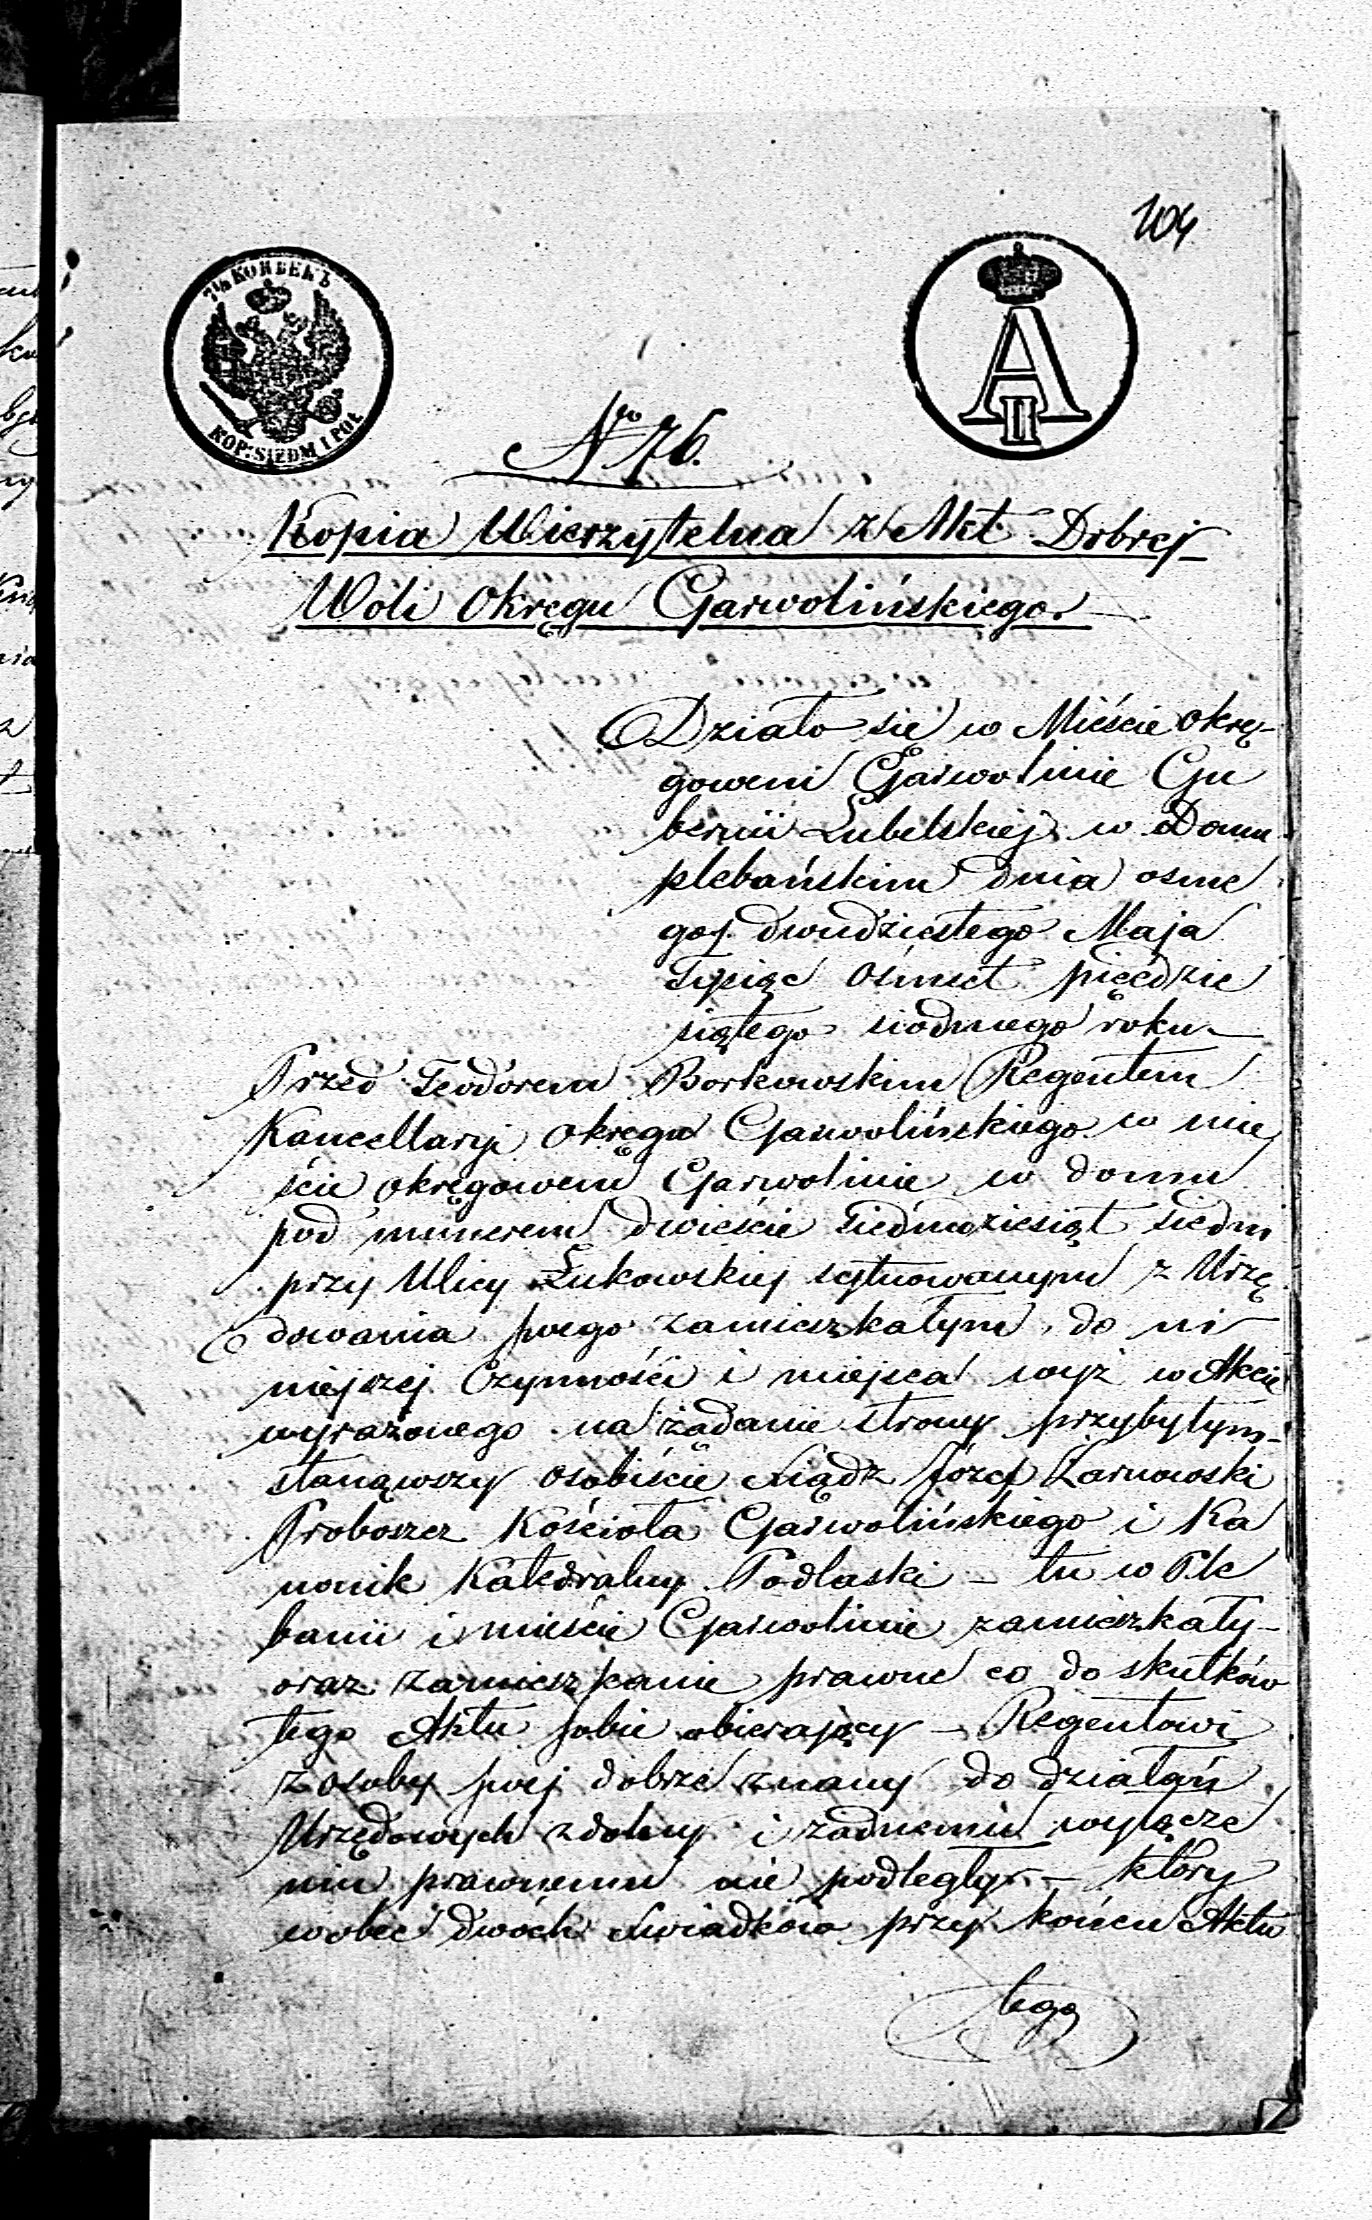 104
7½ КОПѢЕКЪ
KOP: SIEDM I POŁ
A II
No 76.
Kopia Wierzytelna z Akt Dobrej
Woli Okręgu Garwolińskiego.
Działo się w Mieście Okrę-
gowem Garwolinie Gu
bernii Lubelskiej w Domu
plebańskim dnia osme
go/ dwudziestego Maja
Tysiąc Ośmset pięćdzie
siątego siódmego roku
Przed Teodorem Borkowskim Regentem
Kancellaryi Okręgu Garwolińskiego w mie
ście Okręgowem Garwolinie w domu
pod numerem dwieście siedmdziesiąt siedm
przy Ulicy Łukowskiej sytuowanym z Urzę
dowania swego zamieszkałym, do ni
niejszej Czynności i miejsca wyż w Akcie
wyrażonego na żądanie strony przybyłym-
stanąwszy osobiście Xiądz Józef Żarnowski
Proboszcz Kościoła Garwolińskiego i Ka
nonik Katedralny Podlaski - tu w Ple
banii i mieście Garwolinie zamieszkały-
oraz zamieszkanie prawne co do skutków
tego Aktu sobie obierający - Regentowi
z osoby swej dobrze znany do działań
Urzędowych zdolny i żadnemu wyłącze
niu prawnemu nie podległy - który
wobec dwóch Swiadków przy końcu Aktu
tego